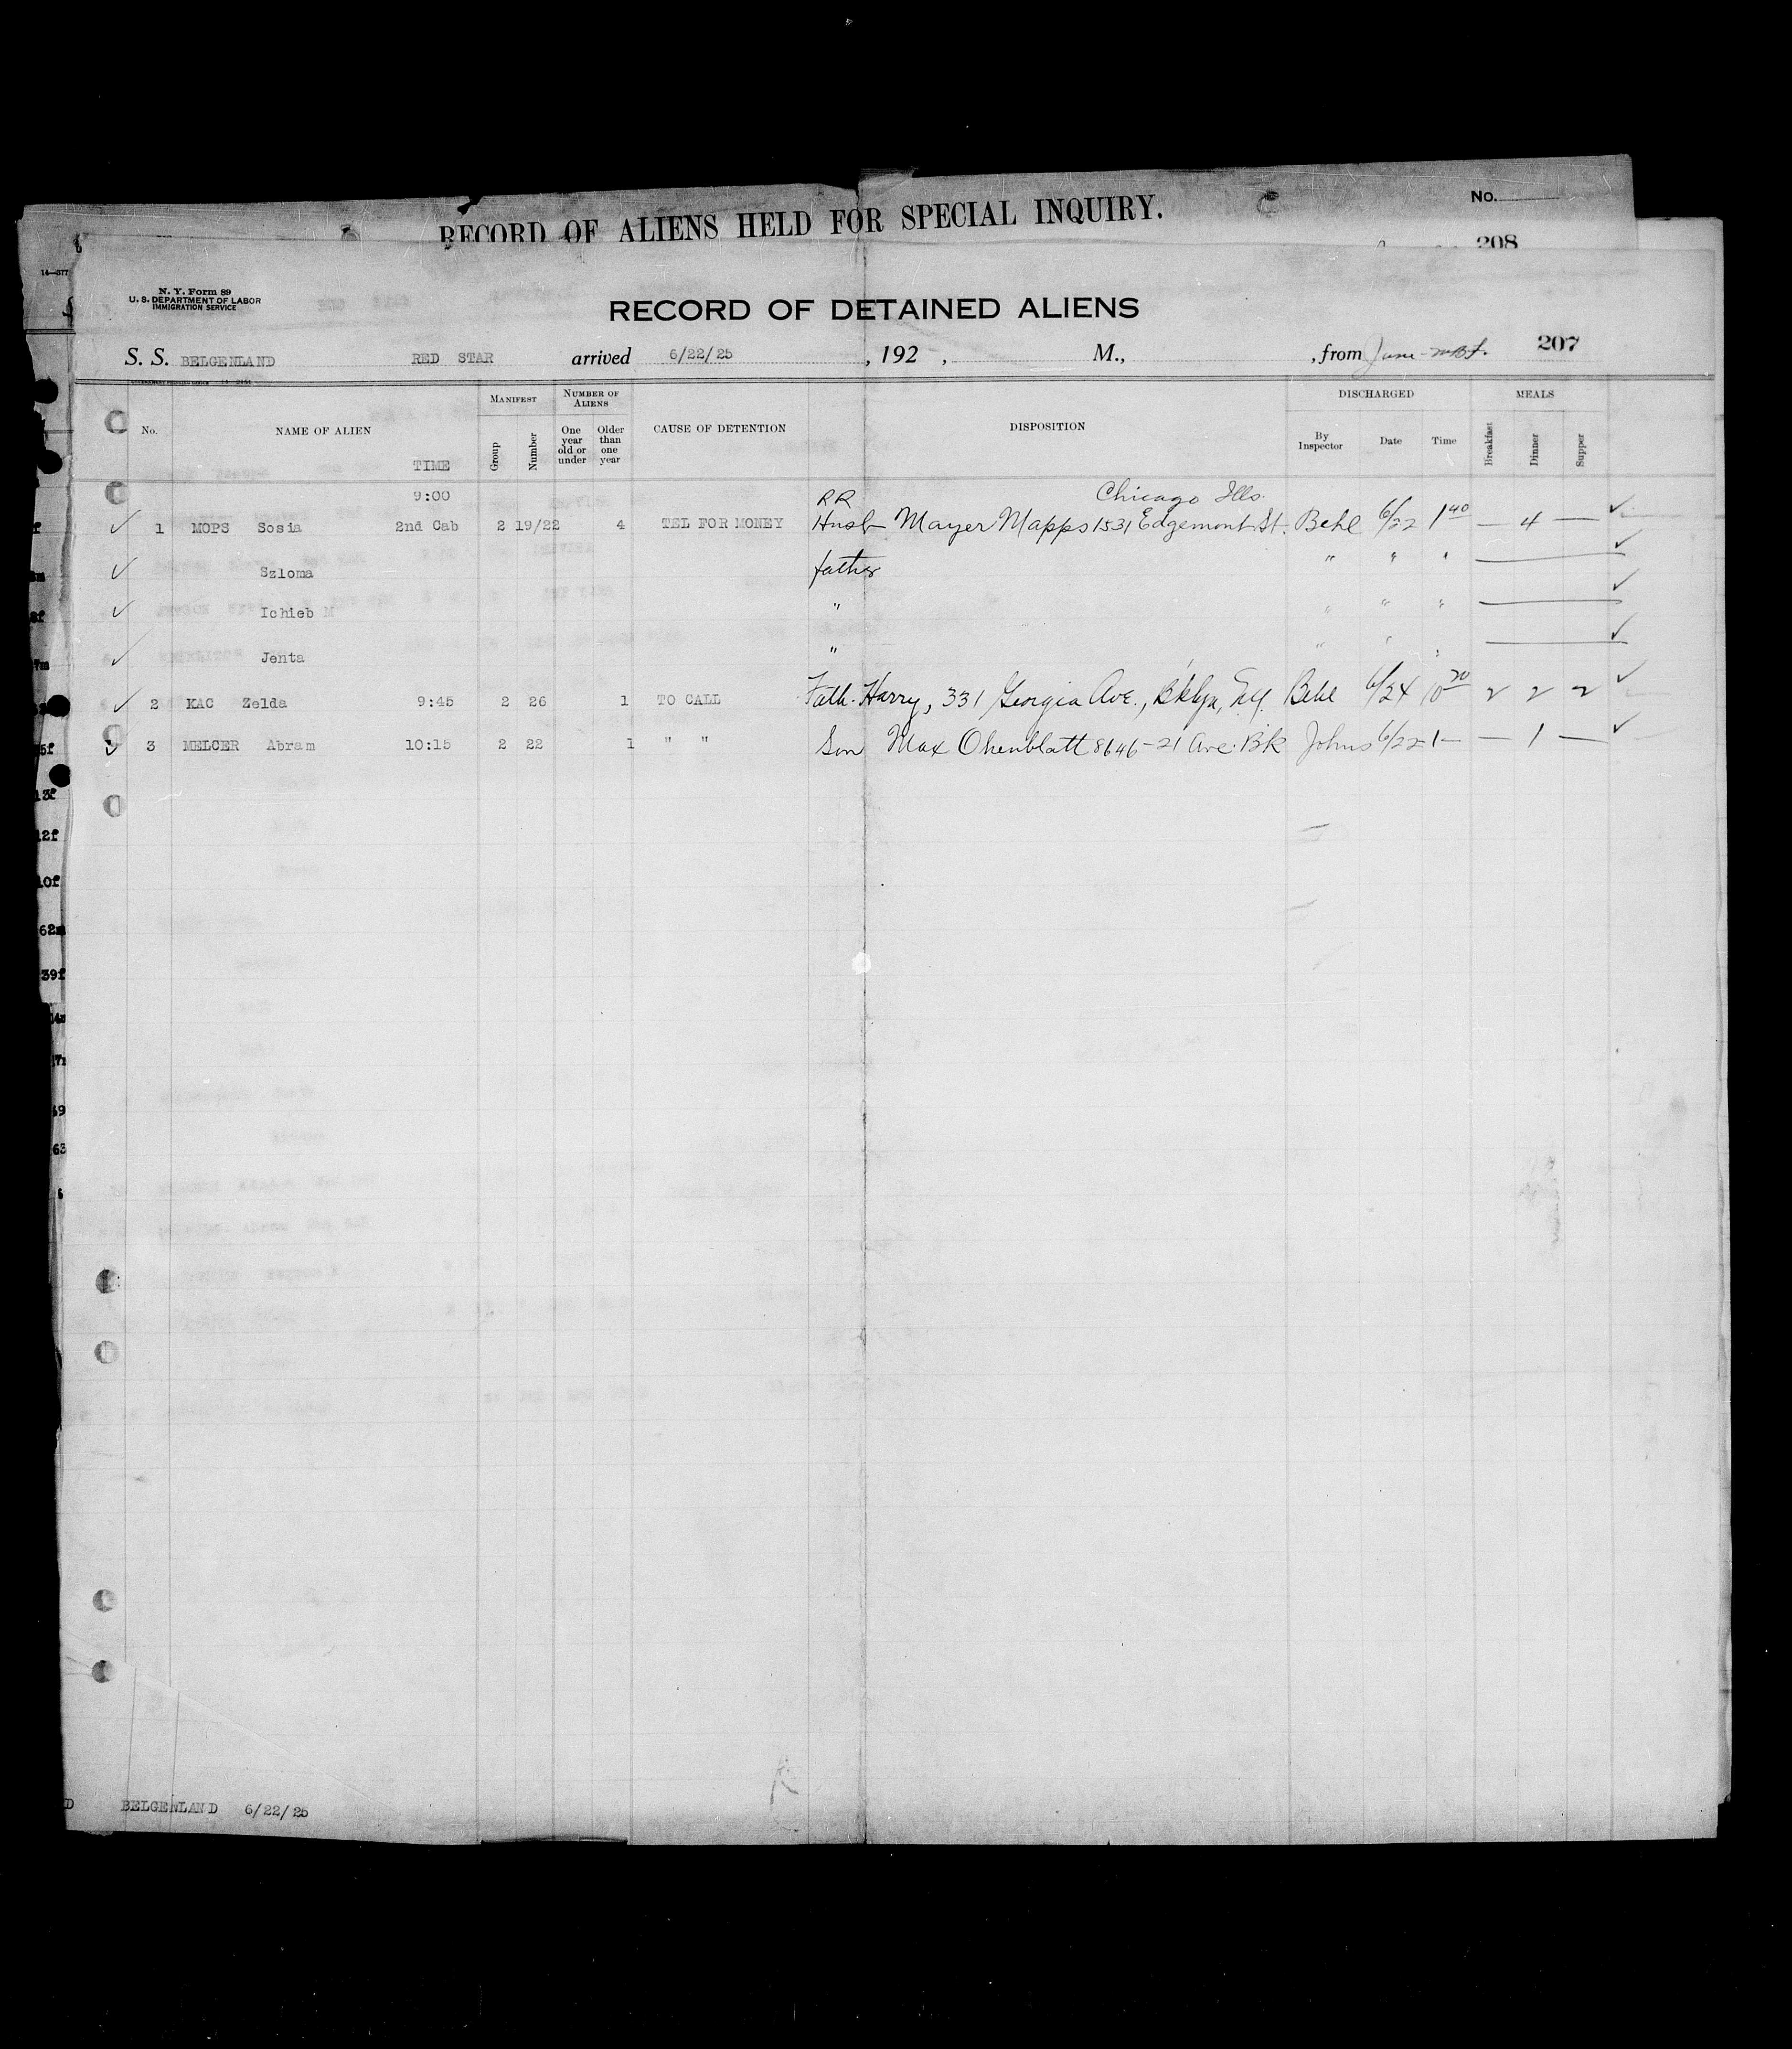 RECORD OF ALIENS HELD FOR SPECIAL INQUIRY.
No.
208
14—377
N. Y. Form 89
U. S. DEPARTMENT OF LABOR
IMMIGRATION SERVICE
RECORD OF DETAINED ALIENS
207
S. S. BELGENLAND RED STAR arrived 6/22/25, 192 , M., , from
MANIFEST NUMBER OF ALIENS DISCHARGED MEALS
No. NAME OF ALIEN TIME Group Number One year old or under Older than one year CAUSE OF DETENTION DISPOSITION By Inspector Date Time Breakfast Dinner Supper
9:00 RR Chicago Ills.
1 MOPS Sosia 2nd Cab 2 19/22 4 TEL FOR MONEY Husb Mayer Mapps 1531 Edgemont St. Behl 6/22 1 40 — 4 —
Szloma father " " "
Ichieb M " " " "
Jenta " " " "
2 KAC Zelda 9:45 2 26 1 TO CALL Fath. Harry, 331 Georgia Ave., B'klyn, N.Y. Behl 6/24 10 20 2 2 2
3 MELCER Abram 10:15 2 22 1 " " Son Max Ohenblatt 8646-21 Ave. Bk Johns 6/22 1— — 1 —
13f
12f
10f
62m
39f
BELGENLAND 6/22/25